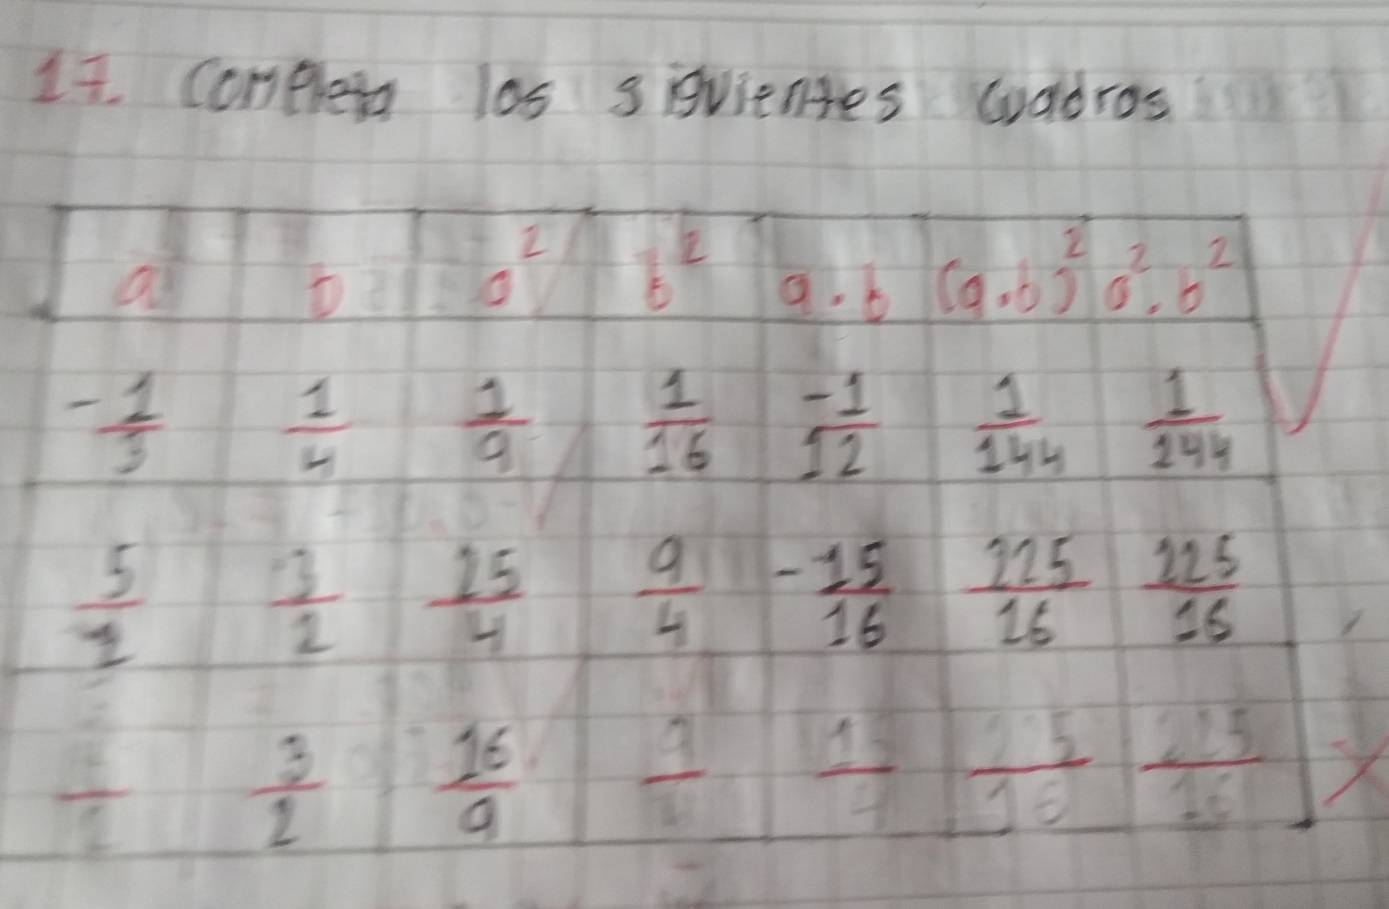 17. Completa los siguientes cuadros
a b a² b² a.b (a.b)² a².b²
-1/3 1/4 1/9 1/16 -1/12 1/144 1/144
5/2 -3/2 25/4 9/4 -15/16 225/16 225/16
3/2 16/9